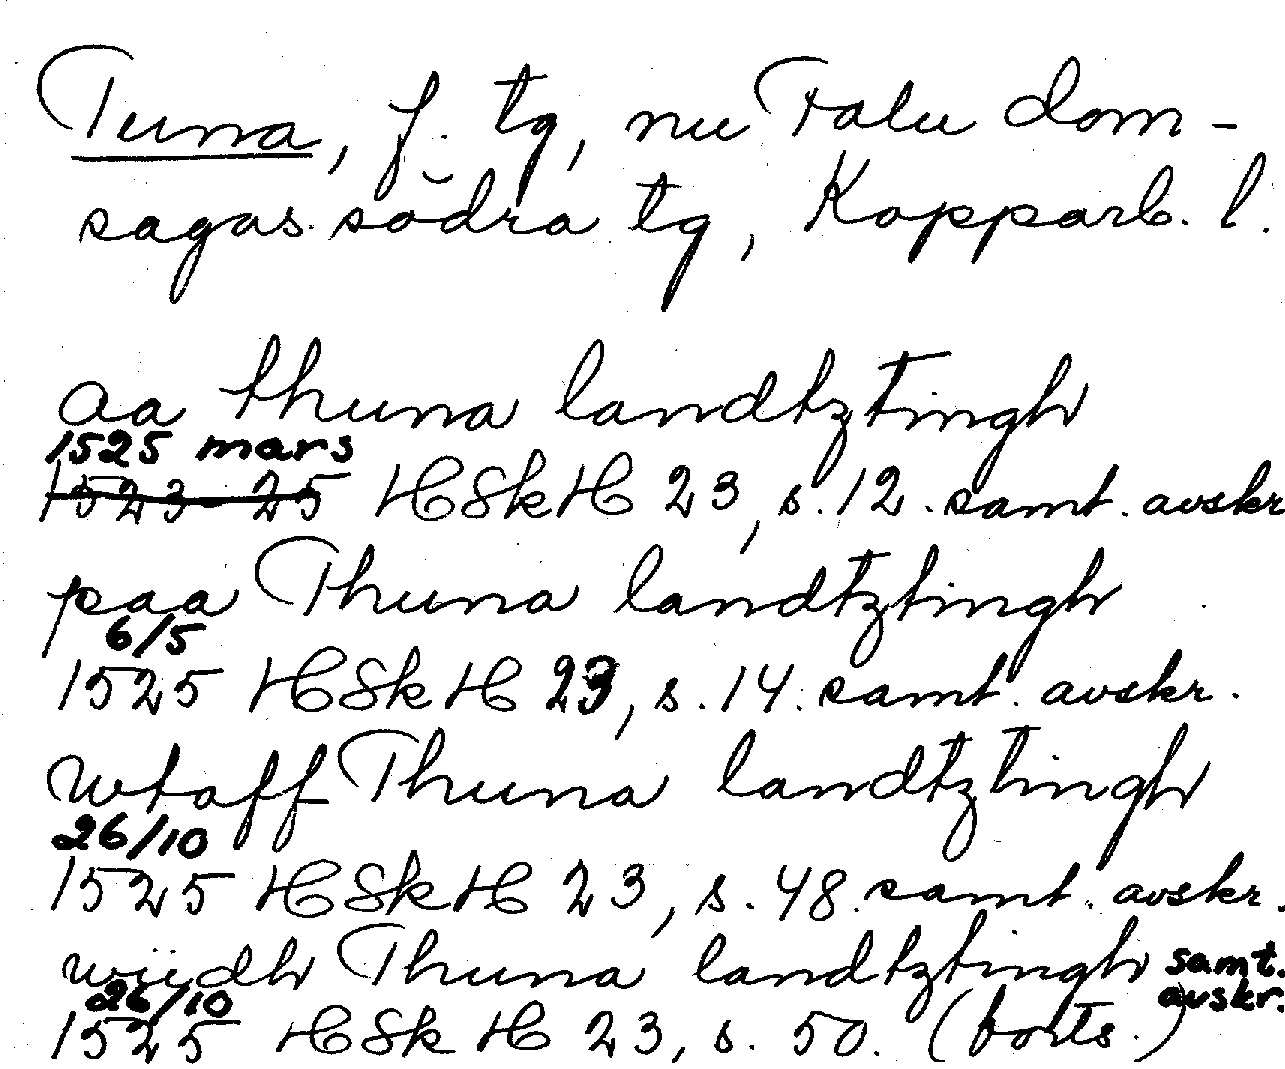 Tuna, f. tg, nu Falu dom-
sagas södra tg, Kopparb. l.
aa thuna landtztingh
1525 mars
1523-25 HSkH 23, s. 12. samt. avskr
paa Thuna landtztingh
6/5
1525 HSkH 23, s. 14. samt. avskr.
wtaff Thuna landtztingh
26/10
1525 HSkH 23, s. 48. samt. avskr.
wiidh Thuna landtztingh samt.
26/10 avskr.
1525 HSkH 23, s. 50. (forts.)